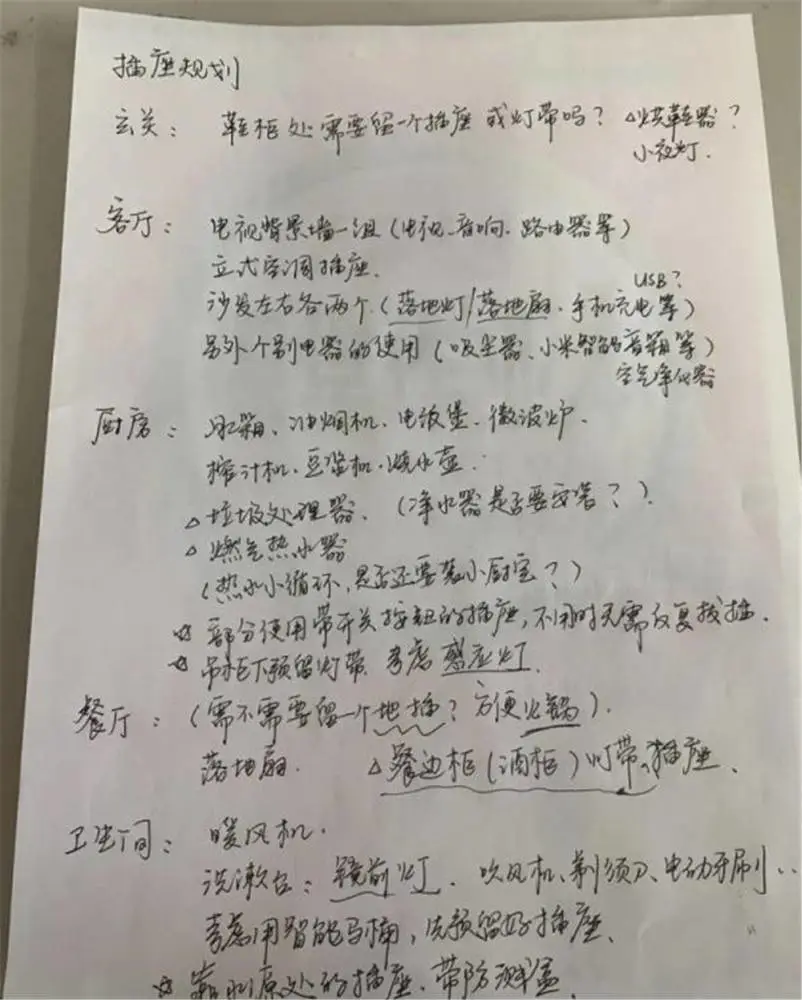 插座规划
玄关： 鞋柜处需要留一个插座或灯带吗？ △烘鞋器？
小夜灯.
客厅： 电视背景墙一组（电视、音响、路由器等）
立式空调插座.
USB？
沙发左右各两个（落地灯/落地扇、手机充电等）
另外个别电器的使用（吸尘器、小米智能音箱等）
空气净化器
厨房： 冰箱、油烟机、电饭煲、微波炉.
榨汁机、豆浆机、烧水壶.
△垃圾处理器. （净水器是否要安装？）.
△燃气热水器
（热水小循环,是否还要装小厨宝？）
☆部分使用带开关按钮的插座,不用时无需反复拔插.
☆吊柜下预留灯带. 考虑感应灯.
餐厅：（需不需要留一个地插？方便火锅）.
落地扇. △餐边柜（酒柜）灯带、插座.
卫生间： 暖风机.
洗漱台：镜前灯. 吹风机、剃须刀、电动牙刷..
考虑用智能马桶,先预留好插座.
☆靠水源处的插座.带防溅盖